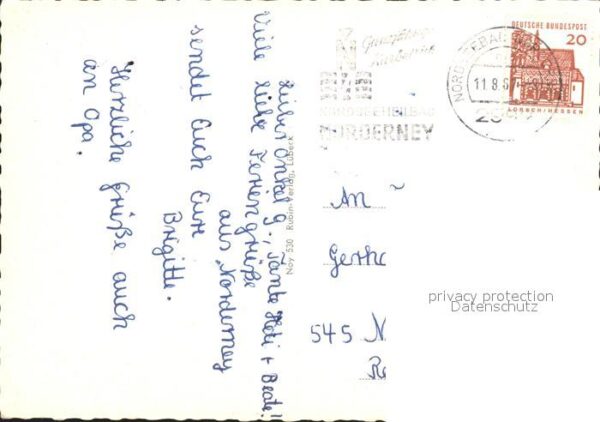 Lieber Onkel G., Tante Heti + Beate!
Viele liebe Feriengrüße
aus "Norderney
sendet Euch Eure
Brigitte.
Herzliche Grüße auch
an Opa.
Noy 530 Rubin-Verlag, Lübeck
Ganzjährig
NORDSEEHEILBAD
NORDERNEY
NORDSEEBAD
11.9.6
DEUTSCHE BUNDESPOST
20
LORSCH/HESSEN
An
Gerh
545 N
Re
privacy protection
Datenschutz